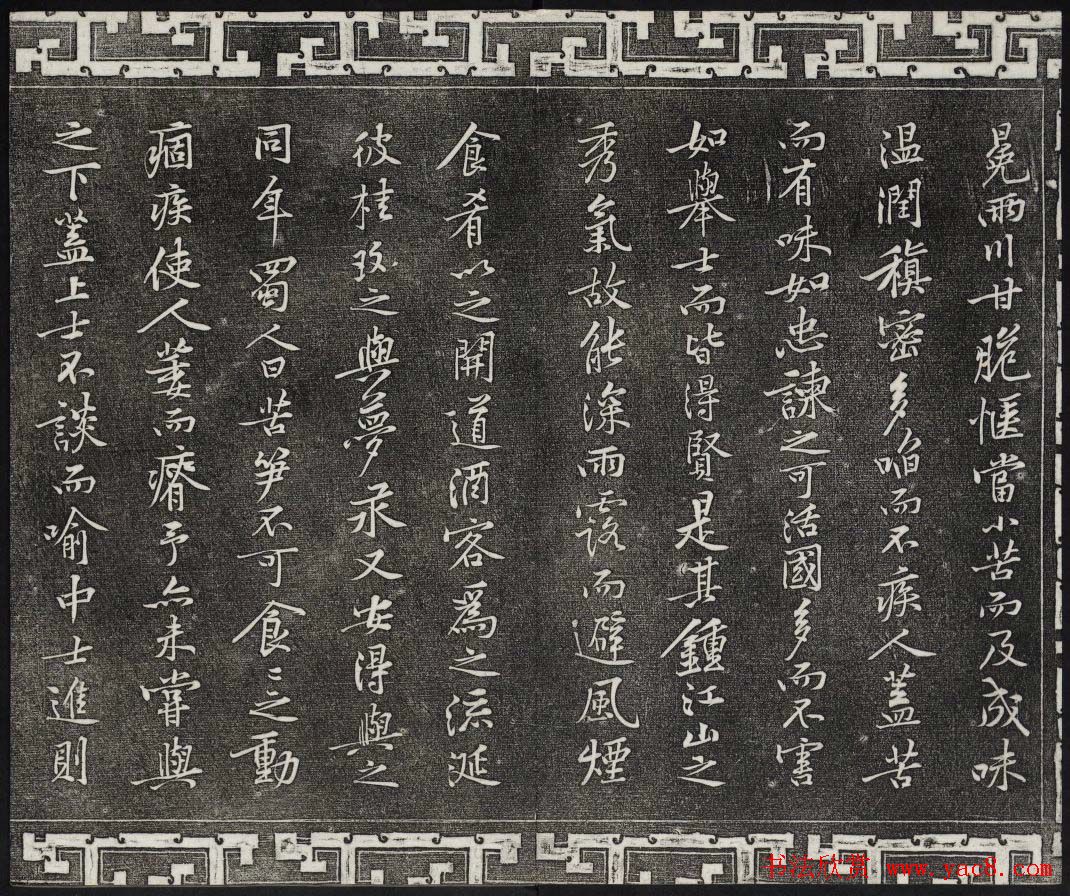 冕兩川甘脆愜當小苦而及成味
温潤稹密多啗而不疾人蓋苦
而有味如忠諫之可活國多而不害
如舉士而皆得賢是其鍾江山之
秀氣故能深雨露而避風煙
食肴以之開道酒客爲之流涎
彼桂玫之與夢汞又安得與之
同年蜀人曰苦笋不可食〻之動
痼疾使人萋而瘠予亦未嘗與
之下蓋上士不談而喻中士進則
书法欣赏 www.yac8.com